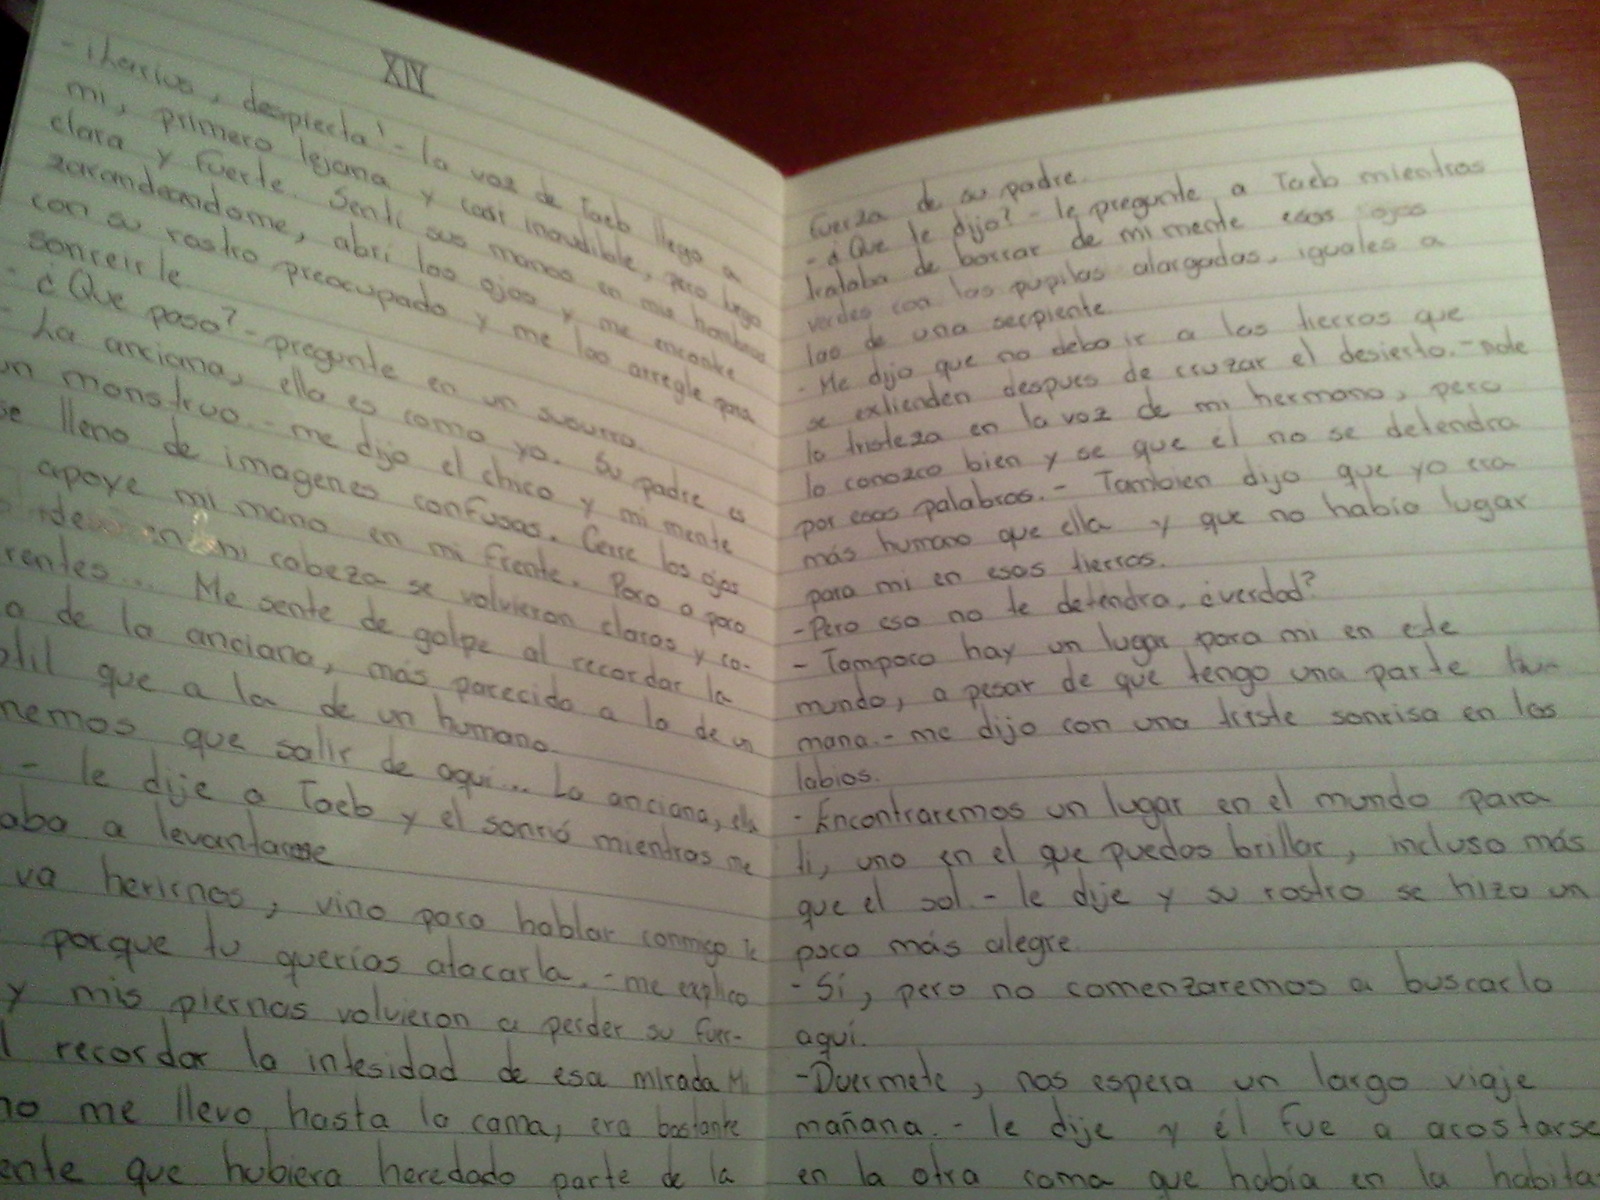 XIV
despierta! - la voz de Taeb llego a
mi, primero lejana y casi inaudible, pero luego
clara y fuerte. Sentí sus manos en mis hombros
zarandeandome, abrí los ojos y me encontre
con su rostro preocupado y me las arregle para
sonreirle
- ¿Que paso? - pregunte en un susurro.
- La anciana, ella es como yo. Su padre es
un monstruo. - me dijo el chico y mi mente
se lleno de imagenes confusas. Cerre los ojos
apoye mi mano en mi frente. Poco a poco
mi cabeza se volvieron claras y co-
rentes... Me sente de golpe al recordar la
a de la anciana, más parecida a la de un
til que a la de un humano.
nemos que salir de aqui... La anciana, ella
- le dije a Taeb y el sonrió mientras me
aba a levantarme
va herirnos, vino para hablar conmigo
porque tu querías atacarla. - me explico
y mis piernas volvieron a perder su fuer-
l recordar la intesidad de esa mirada Mi
no me llevo hasta la cama, era bastante
ente que hubiera heredado parte de la
fuerza de su padre.
- ¿Que te dijo? - le pregunte a Taeb mientras
trataba de borrar de mi mente esos ojos
verdes con las pupilas alargadas, iguales a
las de una serpiente.
- Me dijo que no debo ir a las tierras que
se extienden despues de cruzar el desierto. - note
la tristeza en la voz de mi hermano, pero
lo conozco bien y se que él no se detendra
por esas palabras. - Tambien dijo que yo era
más humano que ella y que no había lugar
para mi en esas tierras.
- Pero eso no te detendra, ¿verdad?
- Tampoco hay un lugar para mi en este
mundo, a pesar de que tengo una parte hu-
mana. - me dijo con una triste sonrisa en los
labios.
- Encontraremos un lugar en el mundo para
ti, uno en el que puedas brillar, incluso más
que el sol. - le dije y su rostro se hizo un
poco más alegre.
- Sí, pero no comenzaremos a buscarlo
aquí.
- Duermete, nos espera un largo viaje
mañana. - le dije y él fue a acostarse
en la otra cama que había en la habita